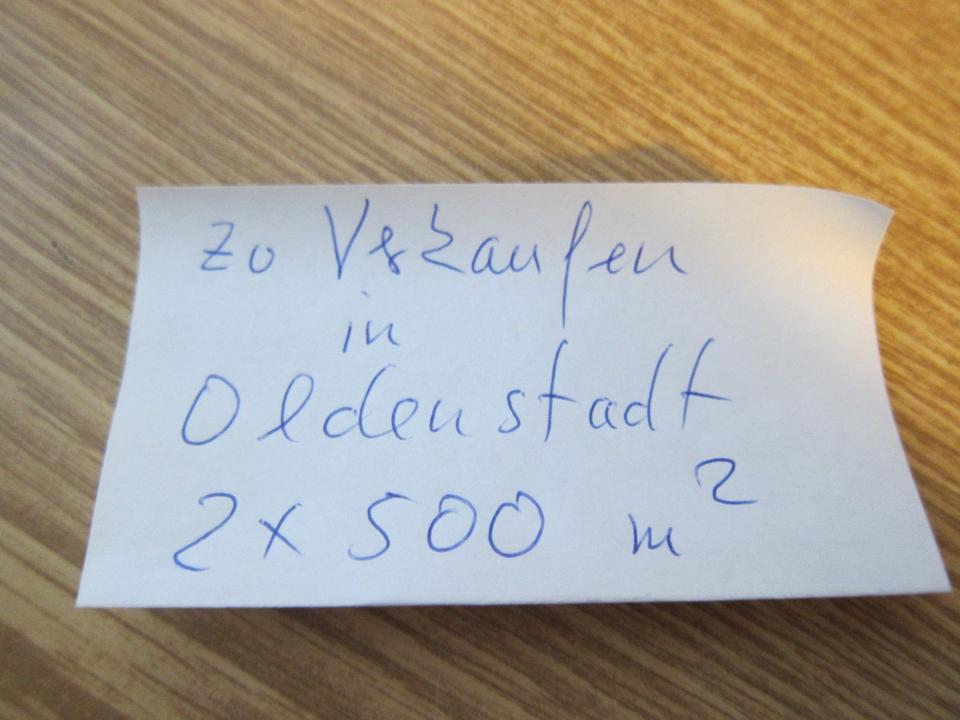 zu Verkaufen
in
Oldenstadt
2x 500 m²